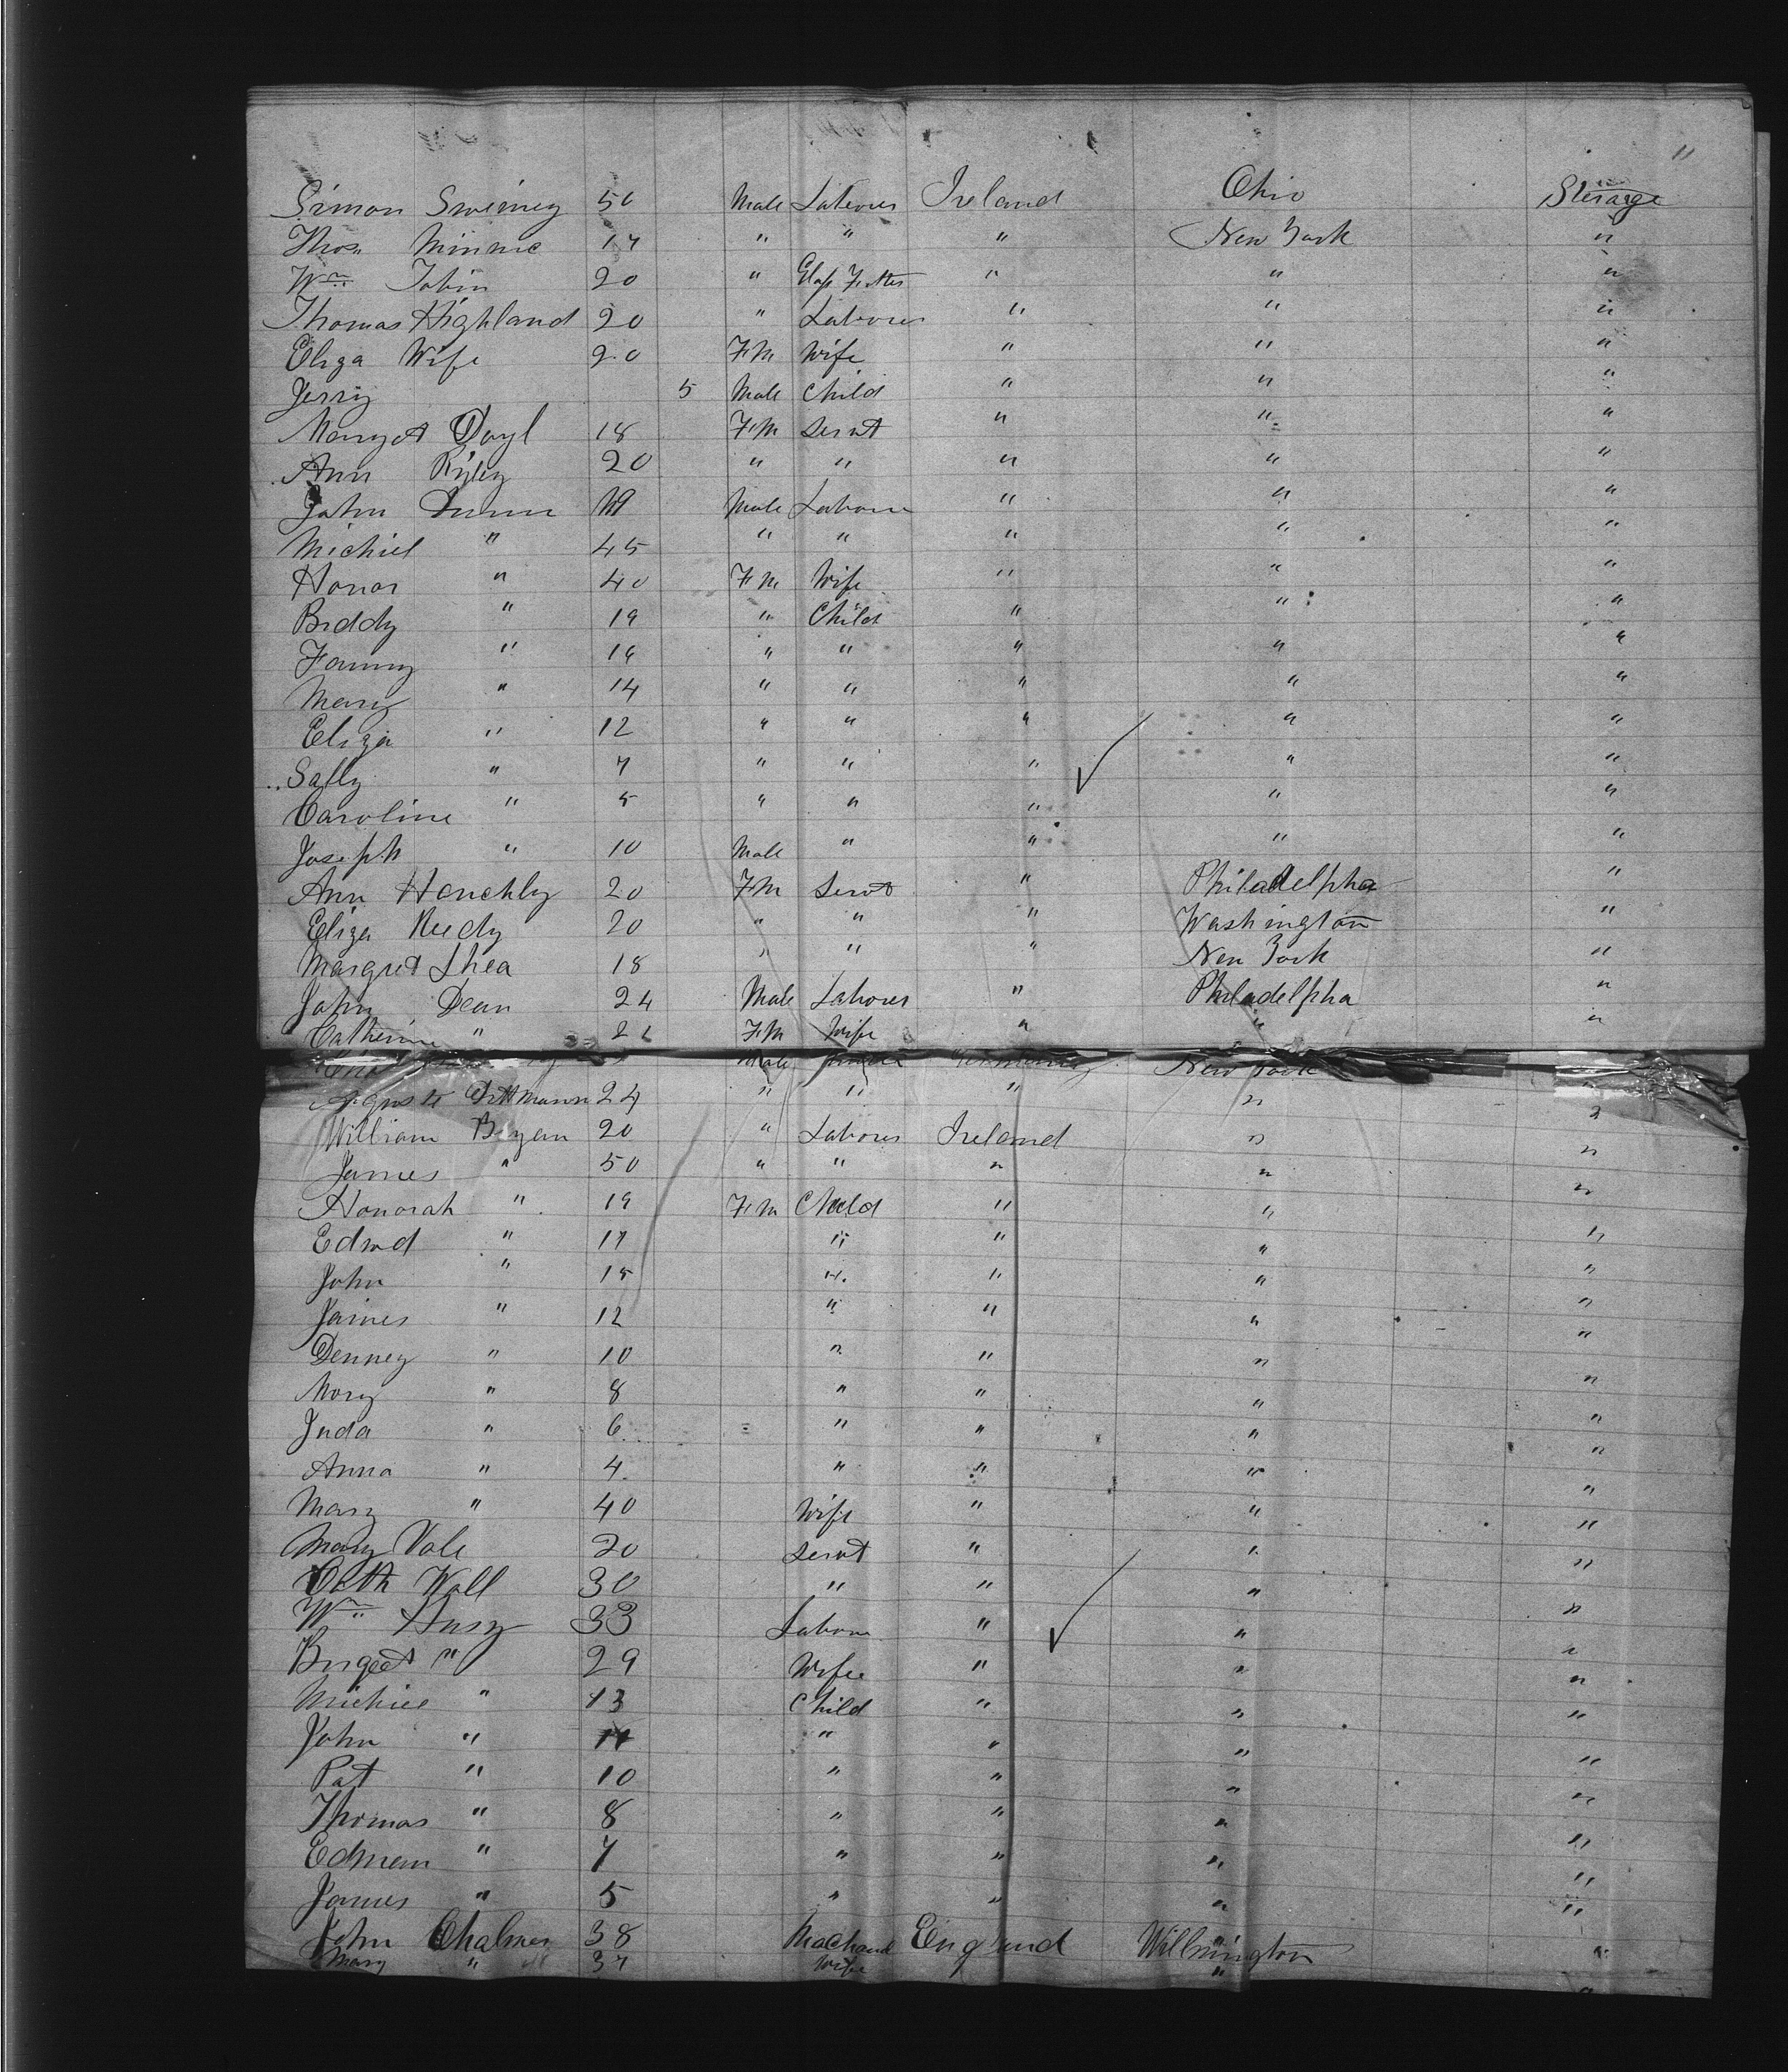 "
Simon Sweiney 50 Male Labourer Ireland Ohio Sterage
Thos Minnie 17 " " " New York "
Wm Tobin 20 " Glass Fitter " " "
Thomas Highland 20 " Labourer " " "
Eliza Wife 20 FM Wife " " "
Jerry 5 Male Child " " "
Margot Doyl 18 FM Servt " " "
Ann Riley 20 " " " " "
John Dunn Male Labourer " " "
Michiel " 45 " " " " "
Honor " 40 FM Wife " " "
Biddy " 19 " Child " " "
Fanny " 16 " " " " "
Mary " 14 " " " " "
Eliza " 12 " " " " "
Sally " 7 " " " " "
Caroline " 5 " " " " "
Joseph " 10 Male " " " "
Ann Henchly 20 FM Servt " Philadelpha "
Eliza Reedy 20 " " " Washington "
Margret Shea 18 " " " New York "
John Dean 24 Male Labourer " Philadelpha "
Catherine " 26 FM Wife " " "
Male Germany New York
August Dittmann 24 " " " " "
William Bryan 20 " Labourer Ireland " "
James " 50 " " " " "
Honorah " 19 FM Child " " "
Edwd " 17 " " " "
John " 15 " " " "
James " 12 " " " "
Denney " 10 " " " "
Mory " 8 " " " "
Juda " 6 " " " "
Anna " 4 " " " "
Mary " 40 Wife " " "
Mary Vale 20 Servt " " "
Cath Wall 30 " " " "
Wm Husy 33 Labour " " "
Briget " 29 Wife " " "
Michiel " 13 Child " " "
John " 11 " " " "
Pat " 10 " " " "
Thomas " 8 " " " "
Edmen " 7 " " " "
James " 5 " " " "
John Chalmer 38 Machanic England Willmington "
Mary " 37 Wife " "